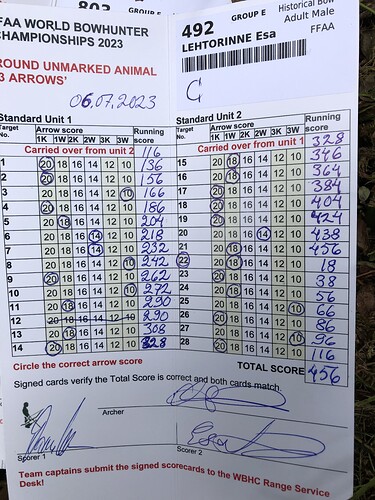 803 GROUP E
FAA WORLD BOWHUNTER
CHAMPIONSHIPS 2023
ROUND UNMARKED ANIMAL
3 ARROWS'
06.07.2023
492 GROUP E Historical Bow
Adult Male
LEHTORINNE Esa FFAA
C
Standard Unit 1
Target No. Arrow score Running score
1K 1W 2K 2W 3K 3W
Carried over from unit 2 116
1 20 18 16 14 12 10 136
2 20 18 16 14 12 10 156
3 20 18 16 14 12 10 166
4 20 18 16 14 12 10 186
5 20 18 16 14 12 10 204
6 20 18 16 14 12 10 218
7 20 18 16 14 12 10 232
8 20 18 16 14 12 10 242
9 20 18 16 14 12 10 262
10 20 18 16 14 12 10 272
11 20 18 16 14 12 10 290
12 20 18 16 14 12 10 290
13 20 18 16 14 12 10 308
14 20 18 16 14 12 10 328
Standard Unit 2
Target No. Arrow score Running score
1K 1W 2K 2W 3K 3W
Carried over from unit 1 328
15 20 18 16 14 12 10 346
16 20 18 16 14 12 10 364
17 20 18 16 14 12 10 384
18 20 18 16 14 12 10 404
19 20 18 16 14 12 10 424
20 20 18 16 14 12 10 438
21 20 18 16 14 12 10 456
22 20 18 16 14 12 10 18
23 20 18 16 14 12 10 38
24 20 18 16 14 12 10 56
25 20 18 16 14 12 10 66
26 20 18 16 14 12 10 86
27 20 18 16 14 12 10 96
28 20 18 16 14 12 10 116
Circle the correct arrow score
TOTAL SCORE 456
Signed cards verify the Total Score is correct and both cards match.
Archer
Scorer 1
Scorer 2
Team captains submit the signed scorecards to the WBHC Range Service
Desk!